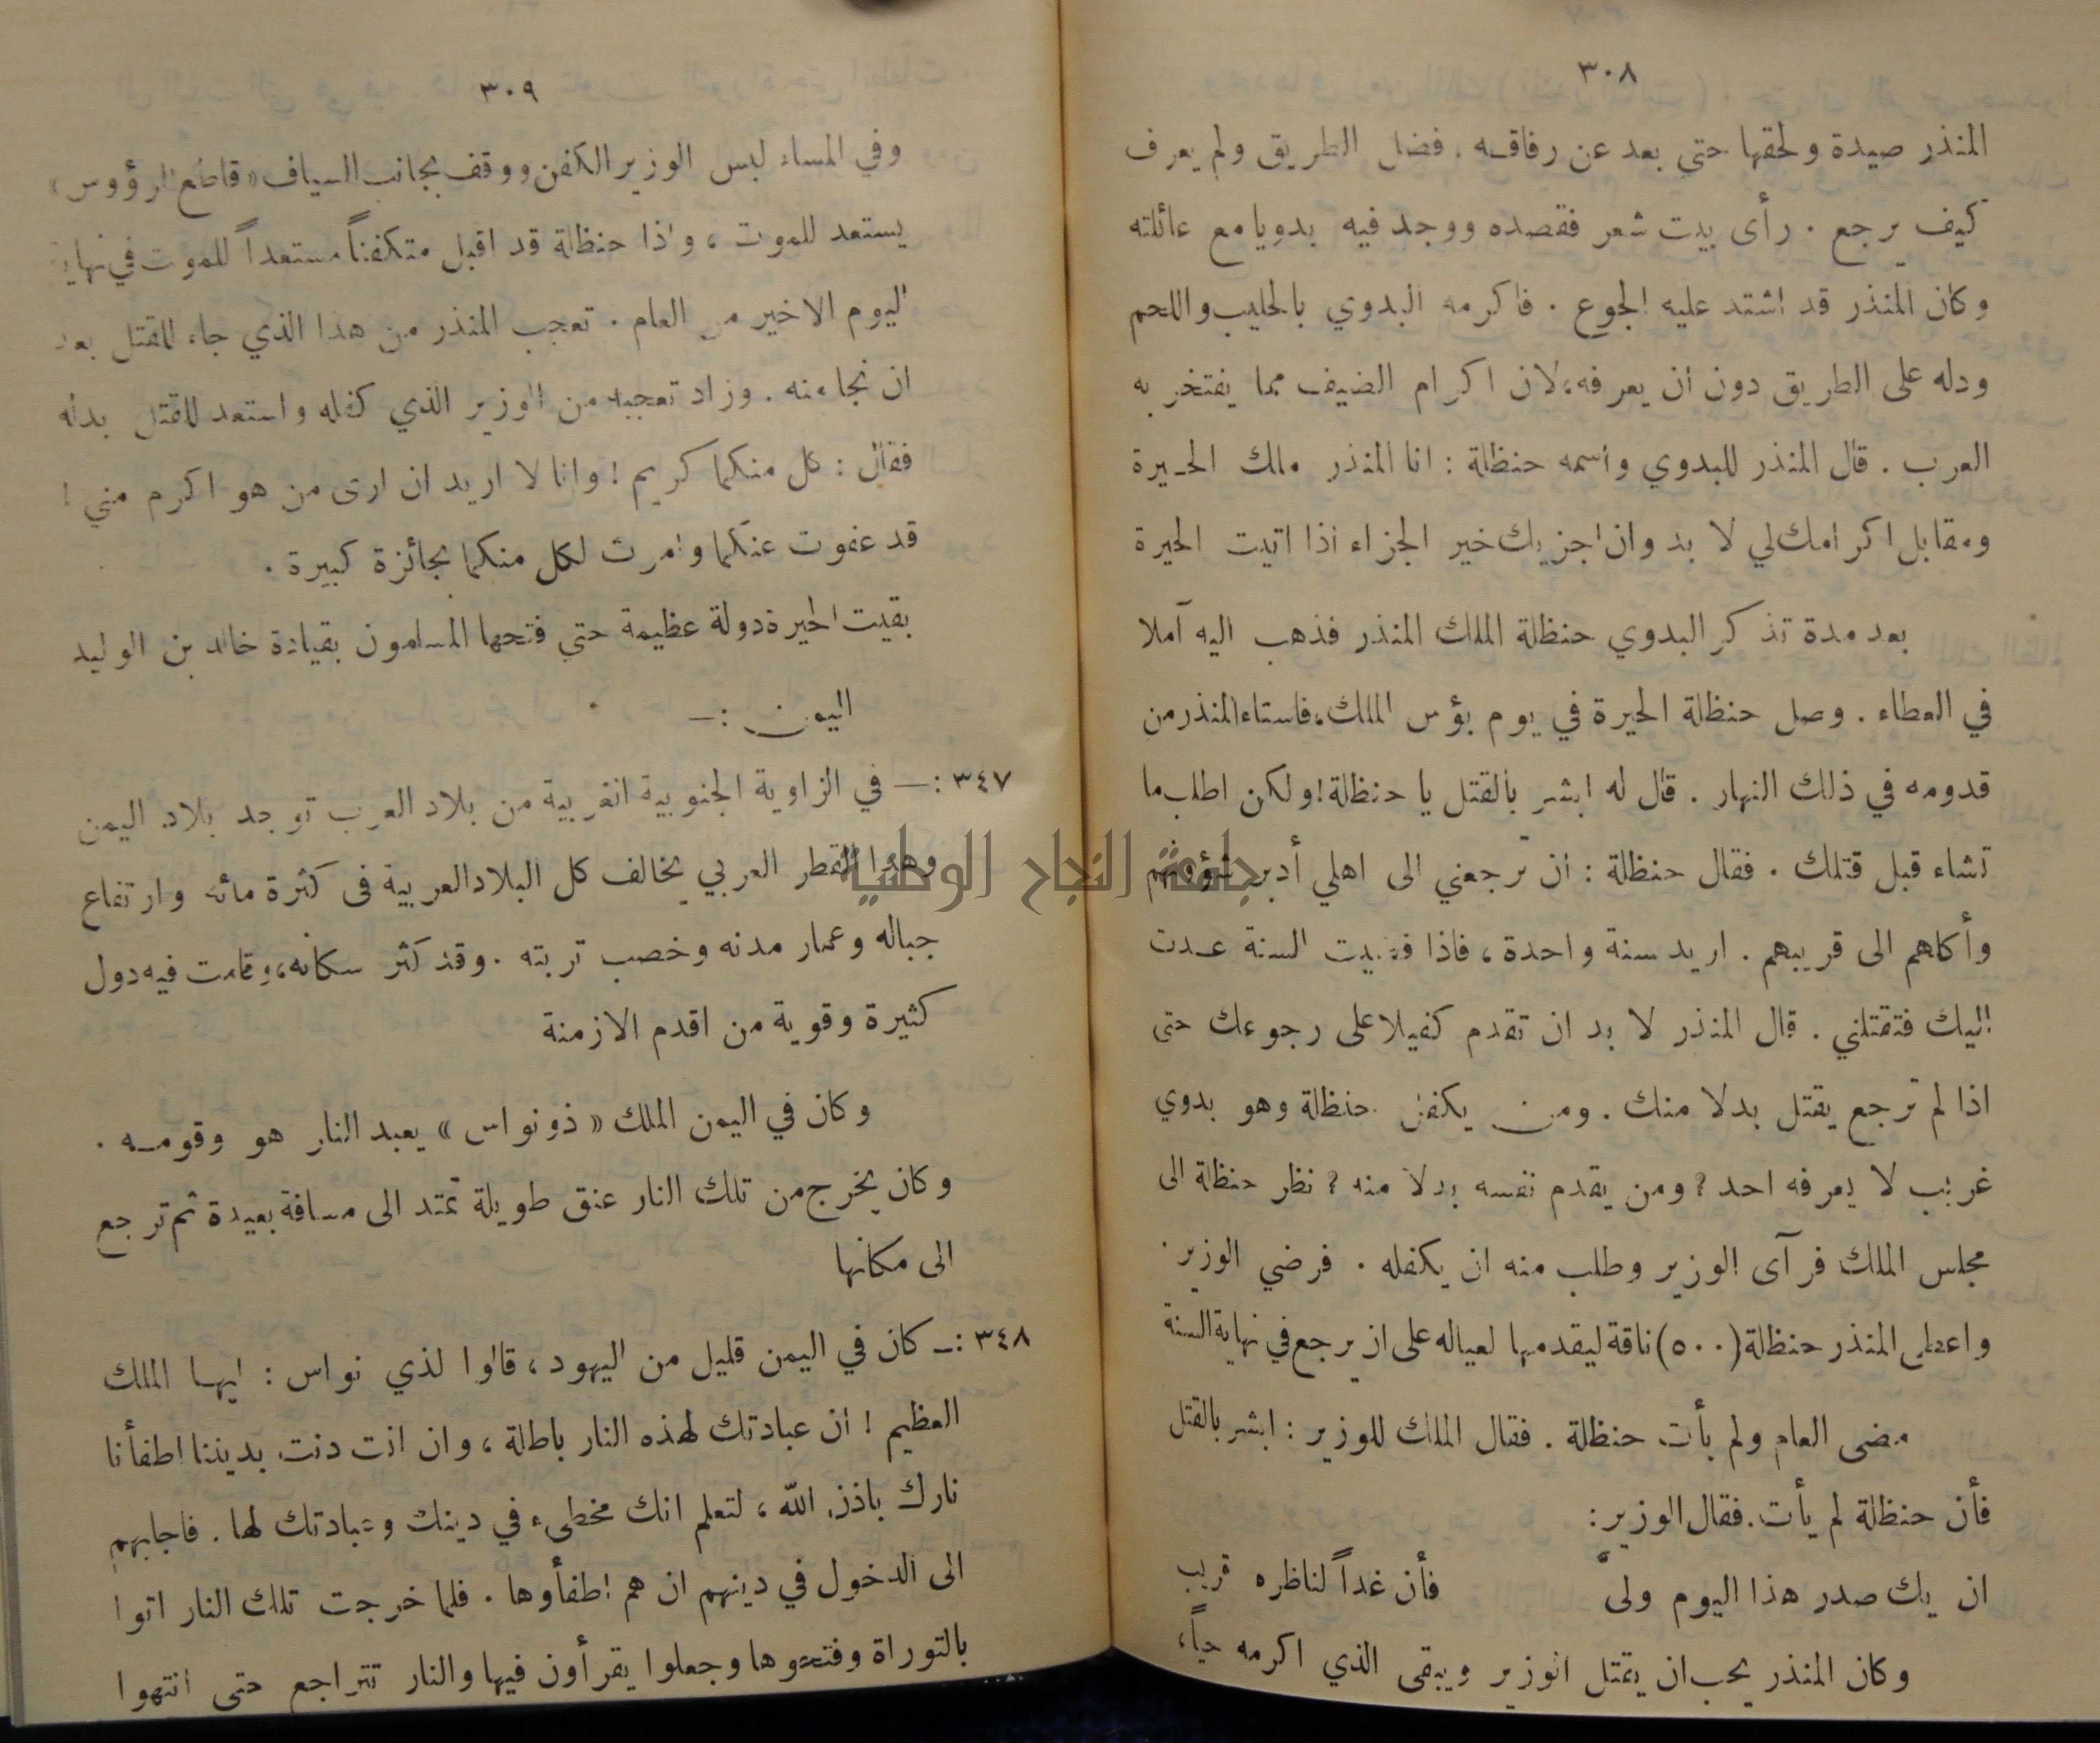 ٣٠٨
المنذر صيدة ولحقها حتى بعد عن رفاقه . فضل الطريق ولم يعرف
كيف يرجع . رأى بيت شعر فقصده ووجد فيه بدويا مع عائلته
وكان المنذر قد اشتد عليه الجوع . فاكرمه البدوي بالحليب واللحم
ودله على الطريق دون أن يعرفه، لان اكرام الضيف مما يفتخر به
العرب . قال المنذر للبدوي وأسمه حنظلة : انا المنذر ملك الحيرة
ومقابل اكرامك لي لا بد وان اجزيك خير الجزاء أذا اتيت الحيرة
بعد مدة تذكر البدوي حنظلة الملك المنذر فذهب اليه آملا
في العطاء . وصل حنظلة الحيرة في يوم بؤس الملك، فاستاء المنذر من
قدومه في ذلك النهار . قال له ابشر بالقتل يا حنظلة! ولكن اطلب ما
تشاء قبل قتلك . فقال حنظلة : ان ترجعني الى اهلي أدبر شؤونهم
وأكاهم الى قريبهم . اريد سنة واحدة ، فاذا قضيت السنة عدت
اليك فتقتلني . قال المنذر لا بد ان تقدم كفيلا على رجوعك حتى
اذا لم ترجع يقتل بدلا منك . ومن يكفل حنظلة وهو بدوي
غريب لا يعرفه احد ? ومن يقدم نفسه بدلا منه ? نظر حنظلة الى
مجلس الملك فرآى الوزير وطلب منه ان يكفله . فرضي الوزير .
واعطى المنذر حنظلة (٥٠٠) ناقة ليقدمها لعياله على ان يرجع في نهاية السنة
مضى العام ولم يأت حنظلة . فقال الملك للوزير : ابشر بالقتل
فأن حنظلة لم يأت. فقال الوزير :
ان يك صدر هذا اليوم ولى فأن غداً لناظره قريب
وكان المنذر يحب ان يقتل الوزير ويبقى الذي اكرمه حياً،
٣٠٩
وفي المساء لبس الوزير الكفن ووقف بجانب السياف «قاطع الرؤوس»
يستعد للموت ، واذا حنظلة قد اقبل متكفناً مستعداً للموت في نهاية
اليوم الاخير من العام . تعجب المنذر من هذا الذي جاء للقتل بعد
ان نجا منه . وزاد تعجبه من الوزير الذي كفله واستعد للقتل بدله
فقال : كل منكما كريم ! وانا لا اريد ان ارى من هو اكرم مني !
قد عفوت عنكما وامرت لكل منكما بجائزة كبيرة .
بقيت الحيرة دولة عظيمة حتى فتحها المسلمون بقيادة خالد بن الوليد
اليمن :—
٣٤٧ :— في الزاوية الجنوبية الغربية من بلاد العرب توجد بلاد اليمن
وهذا القطر العربي يخالف كل البلاد العربية فى كثرة مائه وارتفاع
جباله وعمار مدنه وخصب تربته . وقد كثر سكانه، وقامت فيه دول
كثيرة وقوية من اقدم الازمنة
وكان في اليمن الملك « ذو نواس » يعبد النار هو وقومه .
وكان يخرج من تلك النار عنق طويلة تمتد الى مسافة بعيدة ثم ترجع
الى مكانها
٣٤٨ :— كان في اليمن قليل من اليهود ، قالوا لذي نواس : ايها الملك
العظيم ! ان عبادتك لهذه النار باطلة ، وان انت دنت بديننا اطفأنا
نارك باذن الله ، لتعلم انك مخطىء في دينك وعبادتك لها . فاجابهم
الى الدخول في دينهم ان هم اطفأوها . فلما خرجت تلك النار اتوا
بالتوراة وفتحوها وجعلوا يقرأون فيها والنار تتراجع حتى انتهوا
جامعة النجاح الوطنية